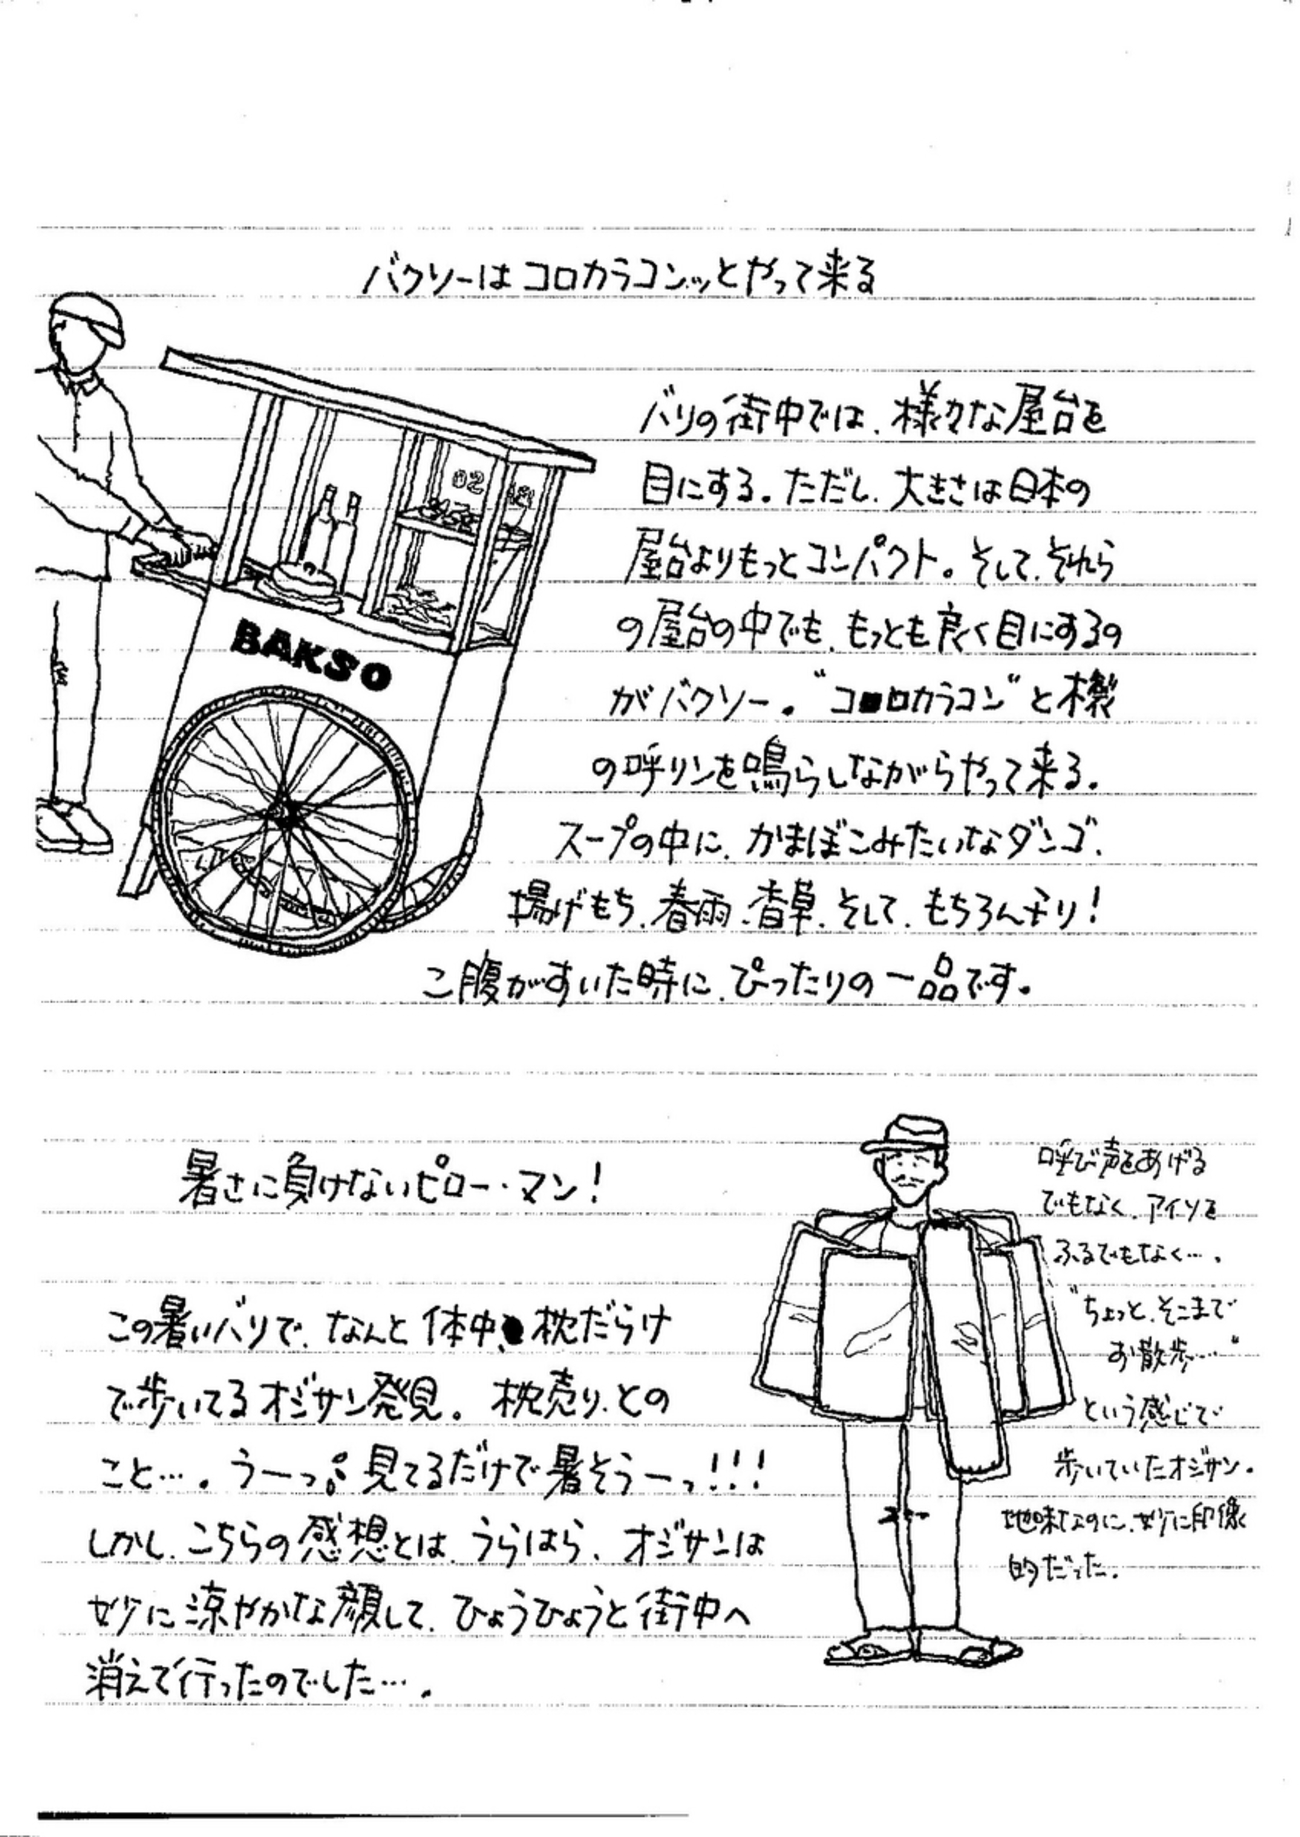 バクソーはコロカラコンッとやって来る
バリの街中では、様々な屋台を
目にする。ただし、大きさは日本の
屋台よりもっとコンパクト。そして、それら
の屋台の中でも、もっとも良く目にするの
がバクソー。“コロカラコン”と木製
の呼リンを鳴らしながらやって来る。
スープの中に、かまぼこみたいなダンゴ、
揚げもち、春雨、香草、そして、もちろんチリ！
こ腹がすいた時に、ぴったりの一品です。
BAKSO
暑さに負けないピロー・マン！
この暑いバリで、なんと体中、枕だらけ
で歩いてるオジサン発見。枕売り、との
こと…。うーっ。見てるだけで暑そうーっ！！！
しかし、こちらの感想とは、うらはら、オジサンは
妙に涼やかな顔して、ひょうひょうと街中へ
消えて行ったのでした…。
呼び声をあげる
でもなく、アイソを
ふるでもなく…。
“ちょっと、そこまで
お散歩…”
という感じで
歩いていたオジサン。
地味なのに、妙に印像
的だった。